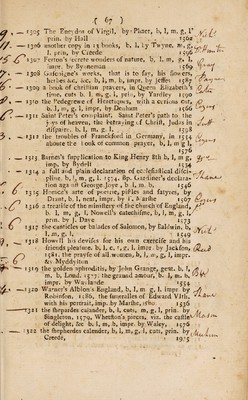 ( 67 )
1305 The Eneydos of Virgil, by Phaer, b, l, m, g, l,
prin. by Hall 1562
1306 another copy in 13 books, b, l, by Twyne, m, g,
l, prin, by Creede 1596
1307 Ferton's secrete wonders of nature, b, l, m, g, l,
impr. by Bynneman 1569
1308 Gascoigne's works, that is to say, his flowers,
herbes &c. &c. b, l, m, b, impr. by Jeffes 1587
1309 a book of christian prayers, in Queen Elizabeth's
time, cuts b. l. m, g, l, prin, by Yardley 1590
1310 the Pedegrewe of Heretiques, with a curious cut,
b. l, m, g, l, impr, by Denham 1566
1311 Saint Peter's complaint. Saint Peter's path to the
joys of heaven, the betraying of Christ, Judas in
despaire. b. l, m, g. l, 1598
1312 the troubles of Franckford in Germany, in 1554
aboute the book of common prayer, b, l, m g l,
1576
1313 Barnes's supplication to King Henry 8th b, l, m, g,
imp, by Bydell 1534
1314 a full and plain declaration of ecclesiastical disci-
pline, b, l, m, g, l, 1574, Bp. Gardiner's declara-
tion against George Joye, b, l, m, b, 1546
1315 Horace's arte of poetrie, pistles and satyres, by
Drant, b, l, neat, impr, by T. Marshe 1567
1316 a treatise of the ministery of the church of England,
b. l, m, g, l, Nowell's catechisme, b, l, m, g, l,
prin. by J. Daye 1573
1317 the canticles or balades of Salomon, by Baldwin, b,
l. m, g, l, 1549
1318 Howell his devises for his own exercise and his
friends pleasure, b, l, e, v, g, l, impr by Jackson,
1581, the praise of all women, b, l, m, g, l, impr.
by Myddylton
1319 the golden aphroditis, by John Grange, gent. b, l,
m, b, Lond. 1577, the graund amour, b, l, m, b,
impr by Waylande 1554
1320 Warner's Albion's England, b, l, m, g, l, impr. by
Robinson, 1586, the funeralles of Edward VIth,
with his portrait, imp. by Marshe, 1560. 1586
1321 the shepardes calander, b, l, cuts, m, g, l, prin. by
Singleton, 1579, Whetston's poems, viz. the castle
of delight, &c. b. l, m, b, impr. by Waley, 1576
1322 the shepherdes calender, b, l, m, g, l, cuts, prin. by
Creede,